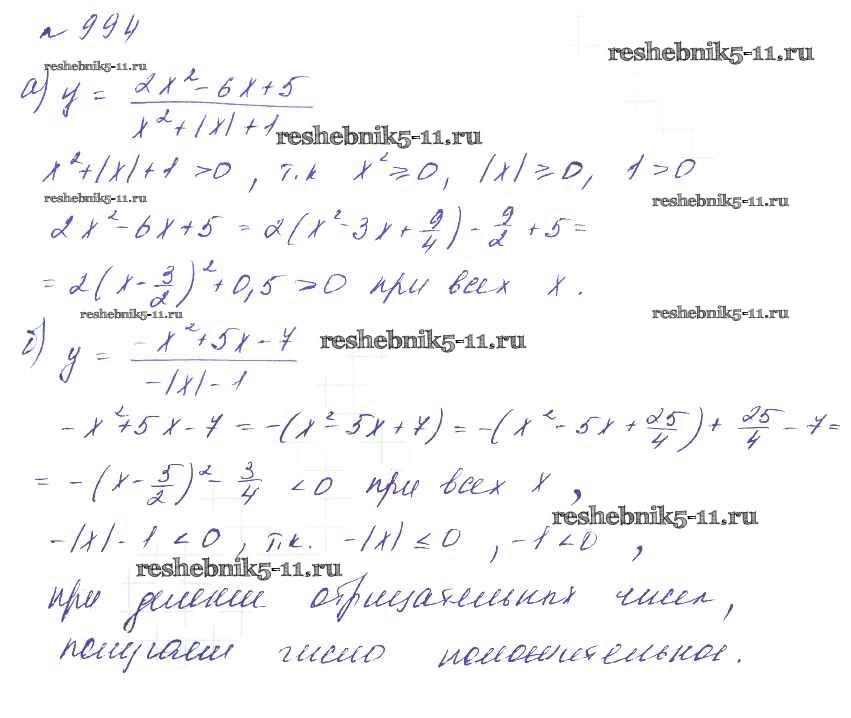 № 994
reshebnik5-11.ru
reshebnik5-11.ru
а) y = (2x² - 6x + 5) / (x² + |x| + 1)
reshebnik5-11.ru
x² + |x| + 1 > 0, т.к x² ≥ 0, |x| ≥ 0, 1 > 0
reshebnik5-11.ru
reshebnik5-11.ru
2x² - 6x + 5 = 2(x² - 3x + 9/4) - 9/2 + 5 =
= 2(x - 3/2)² + 0,5 > 0 при всех x.
reshebnik5-11.ru
reshebnik5-11.ru
б) y = (-x² + 5x - 7) / (-|x| - 1)
reshebnik5-11.ru
-x² + 5x - 7 = -(x² - 5x + 7) = -(x² - 5x + 25/4) + 25/4 - 7 =
= -(x - 5/2)² - 3/4 < 0 при всех x,
reshebnik5-11.ru
-|x| - 1 < 0, т.к. -|x| ≤ 0, -1 < 0,
reshebnik5-11.ru
при делении отрицательных чисел,
получаем число положительное.